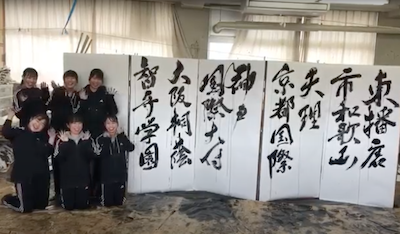 東播磨
市和歌山
天理
京都国際
神戸
国際大付
大阪桐蔭
智弁学園